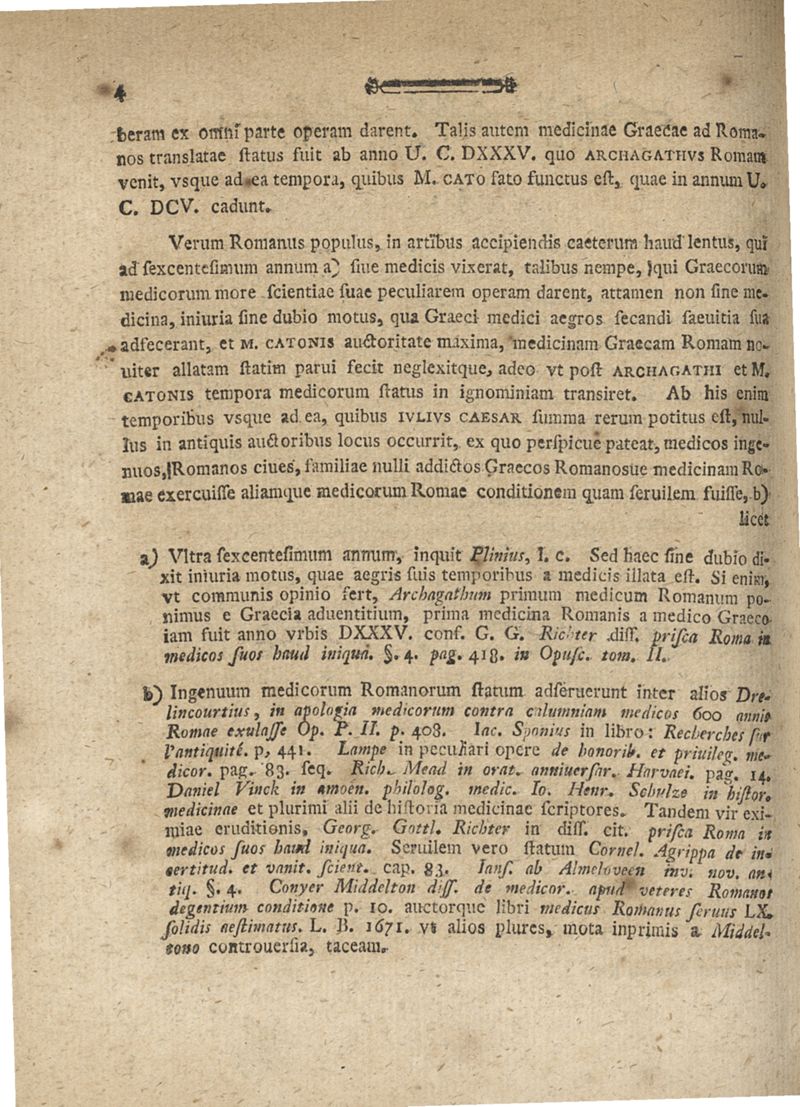 4
beram ex omni parte operam darent. Talis autem medicinae Graecae ad Roma-
nos translatae ſtatus fuit ab anno U. C. DXXXV. quo ARCHAGATHVS Romam
venit, vsque ad ea tempora, quibus M. CATO fato functus eſt, quae in annum U.
C. DCV. cadunt.
Verum Romanus populus, in artibus accipiendis caeterum haud lentus, qui
ad ſexcenteſimum annum a) ſine medicis vixerat, talibus nempe, qui Graecorum
medicorum more ſcientiae ſuae peculiarem operam darent, attamen non ſine me-
dicina, iniuria ſine dubio motus, qua Graeci medici aegros ſecandi ſaeuitia ſua
adfecerant, et M. CATONIS auctoritate maxima, medicinam Graecam Romam no-
uiter allatam ſtatim parui fecit neglexitque, adeo vt poſt ARCHAGATHI et M.
CATONIS tempora medicorum ſtatus in ignominiam transiret. Ab his enim
temporibus vsque ad ea, quibus IVLIVS CAESAR ſumma rerum potitus eſt, nul-
lus in antiquis auctoribus locus occurrit, ex quo perſpicue pateat, medicos inge-
nuos, Romanos ciues, familiae nulli addictos Graecos Romanosue medicinam Ro-
mae exercuiſſe aliamque medicorum Romae conditionem quam ſeruilem fuiſſe, b)
licet
a) Vltra ſexcenteſimum annum, inquit Plinius, l. c. Sed haec ſine dubio di-
xit iniuria motus, quae aegris ſuis temporibus a medicis illata eſt. Si enim,
vt communis opinio fert, Archagathum primum medicum Romanum po-
nimus e Graecia aduentitium, prima medicina Romanis a medico Graeco
iam fuit anno vrbis DXXXV. conf. G. G. Richter diſſ. priſca Roma in
medicos ſuos haud iniqua. §. 4. pag. 418. in Opuſc. tom. II.
b) Ingenuum medicorum Romanorum ſtatum adſeruerunt inter alios Dre-
lincourtius, in apologia medicorum contra calumniam medicos 600 annis
Romae exulaſſe Op. P. II. p. 408. Iac. Sponius in libro: Recherches ſur
l'antiquité. p. 441. Lampe in peculiari opere de honorib. et priuileg. me-
dicor. pag. 83. ſeq. Rich. Mead in orat. anniuerſar. Harvaei. pag. 14.
Daniel Vinck in amoen. philolog. medic. Io. Henr. Schulze in hiſtor.
medicinae et plurimi alii de hiſtoria medicinae ſcriptores. Tandem vir exi-
miae eruditionis, Georg. Gottl. Richter in diſſ. cit. priſca Roma in
medicos ſuos haud iniqua. Seruilem vero ſtatum Cornel. Agrippa de in-
certitud. et vanit. ſcient. cap. 83. Ianſ. ab Almeloveen inv. nov. an-
tiq. §. 4. Conyer Middelton diſſ. de medicor. apud veteres Romanos
degentium conditione p. 10. auctorque libri medicus Romanus ſeruus LX.
ſolidis aeſtimatus. L. B. 1671. vt alios plures, mota inprimis a Middel-
tono controuerſia, taceam.